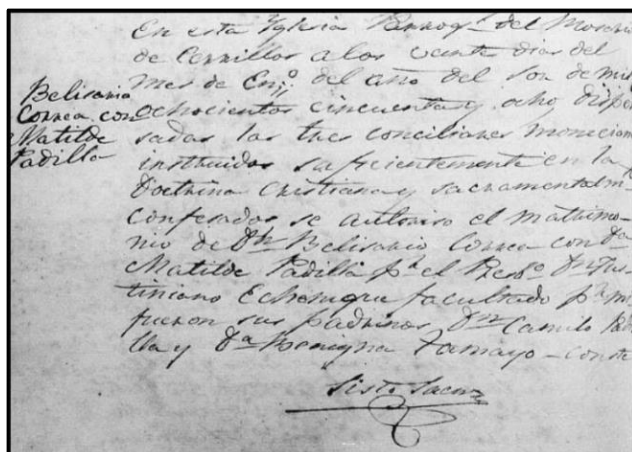 En esta Iglesia Parroq.l del Rosario
de Cerrillos a los veinte dias del
mes de En.o del año del Sor de mil
ochocientos cincuenta y ocho dispen
sadas las tres conciliares monicion
instruidos suficientemente en la
Doctrina Cristiana y sacramentalm
confesados se autoriso el matrimo-
nio de Dn Belisario Correa con Da
Matilde Padilla pr el Presb.o Dn Jus
tiniano Echenique facultado pr mi
fueron sus padrinos Dn Camilo Padi
lla y Da Benigna Tamayo - conste
Sisto Saenz
Belisario
Correa con
Matilde
Padilla